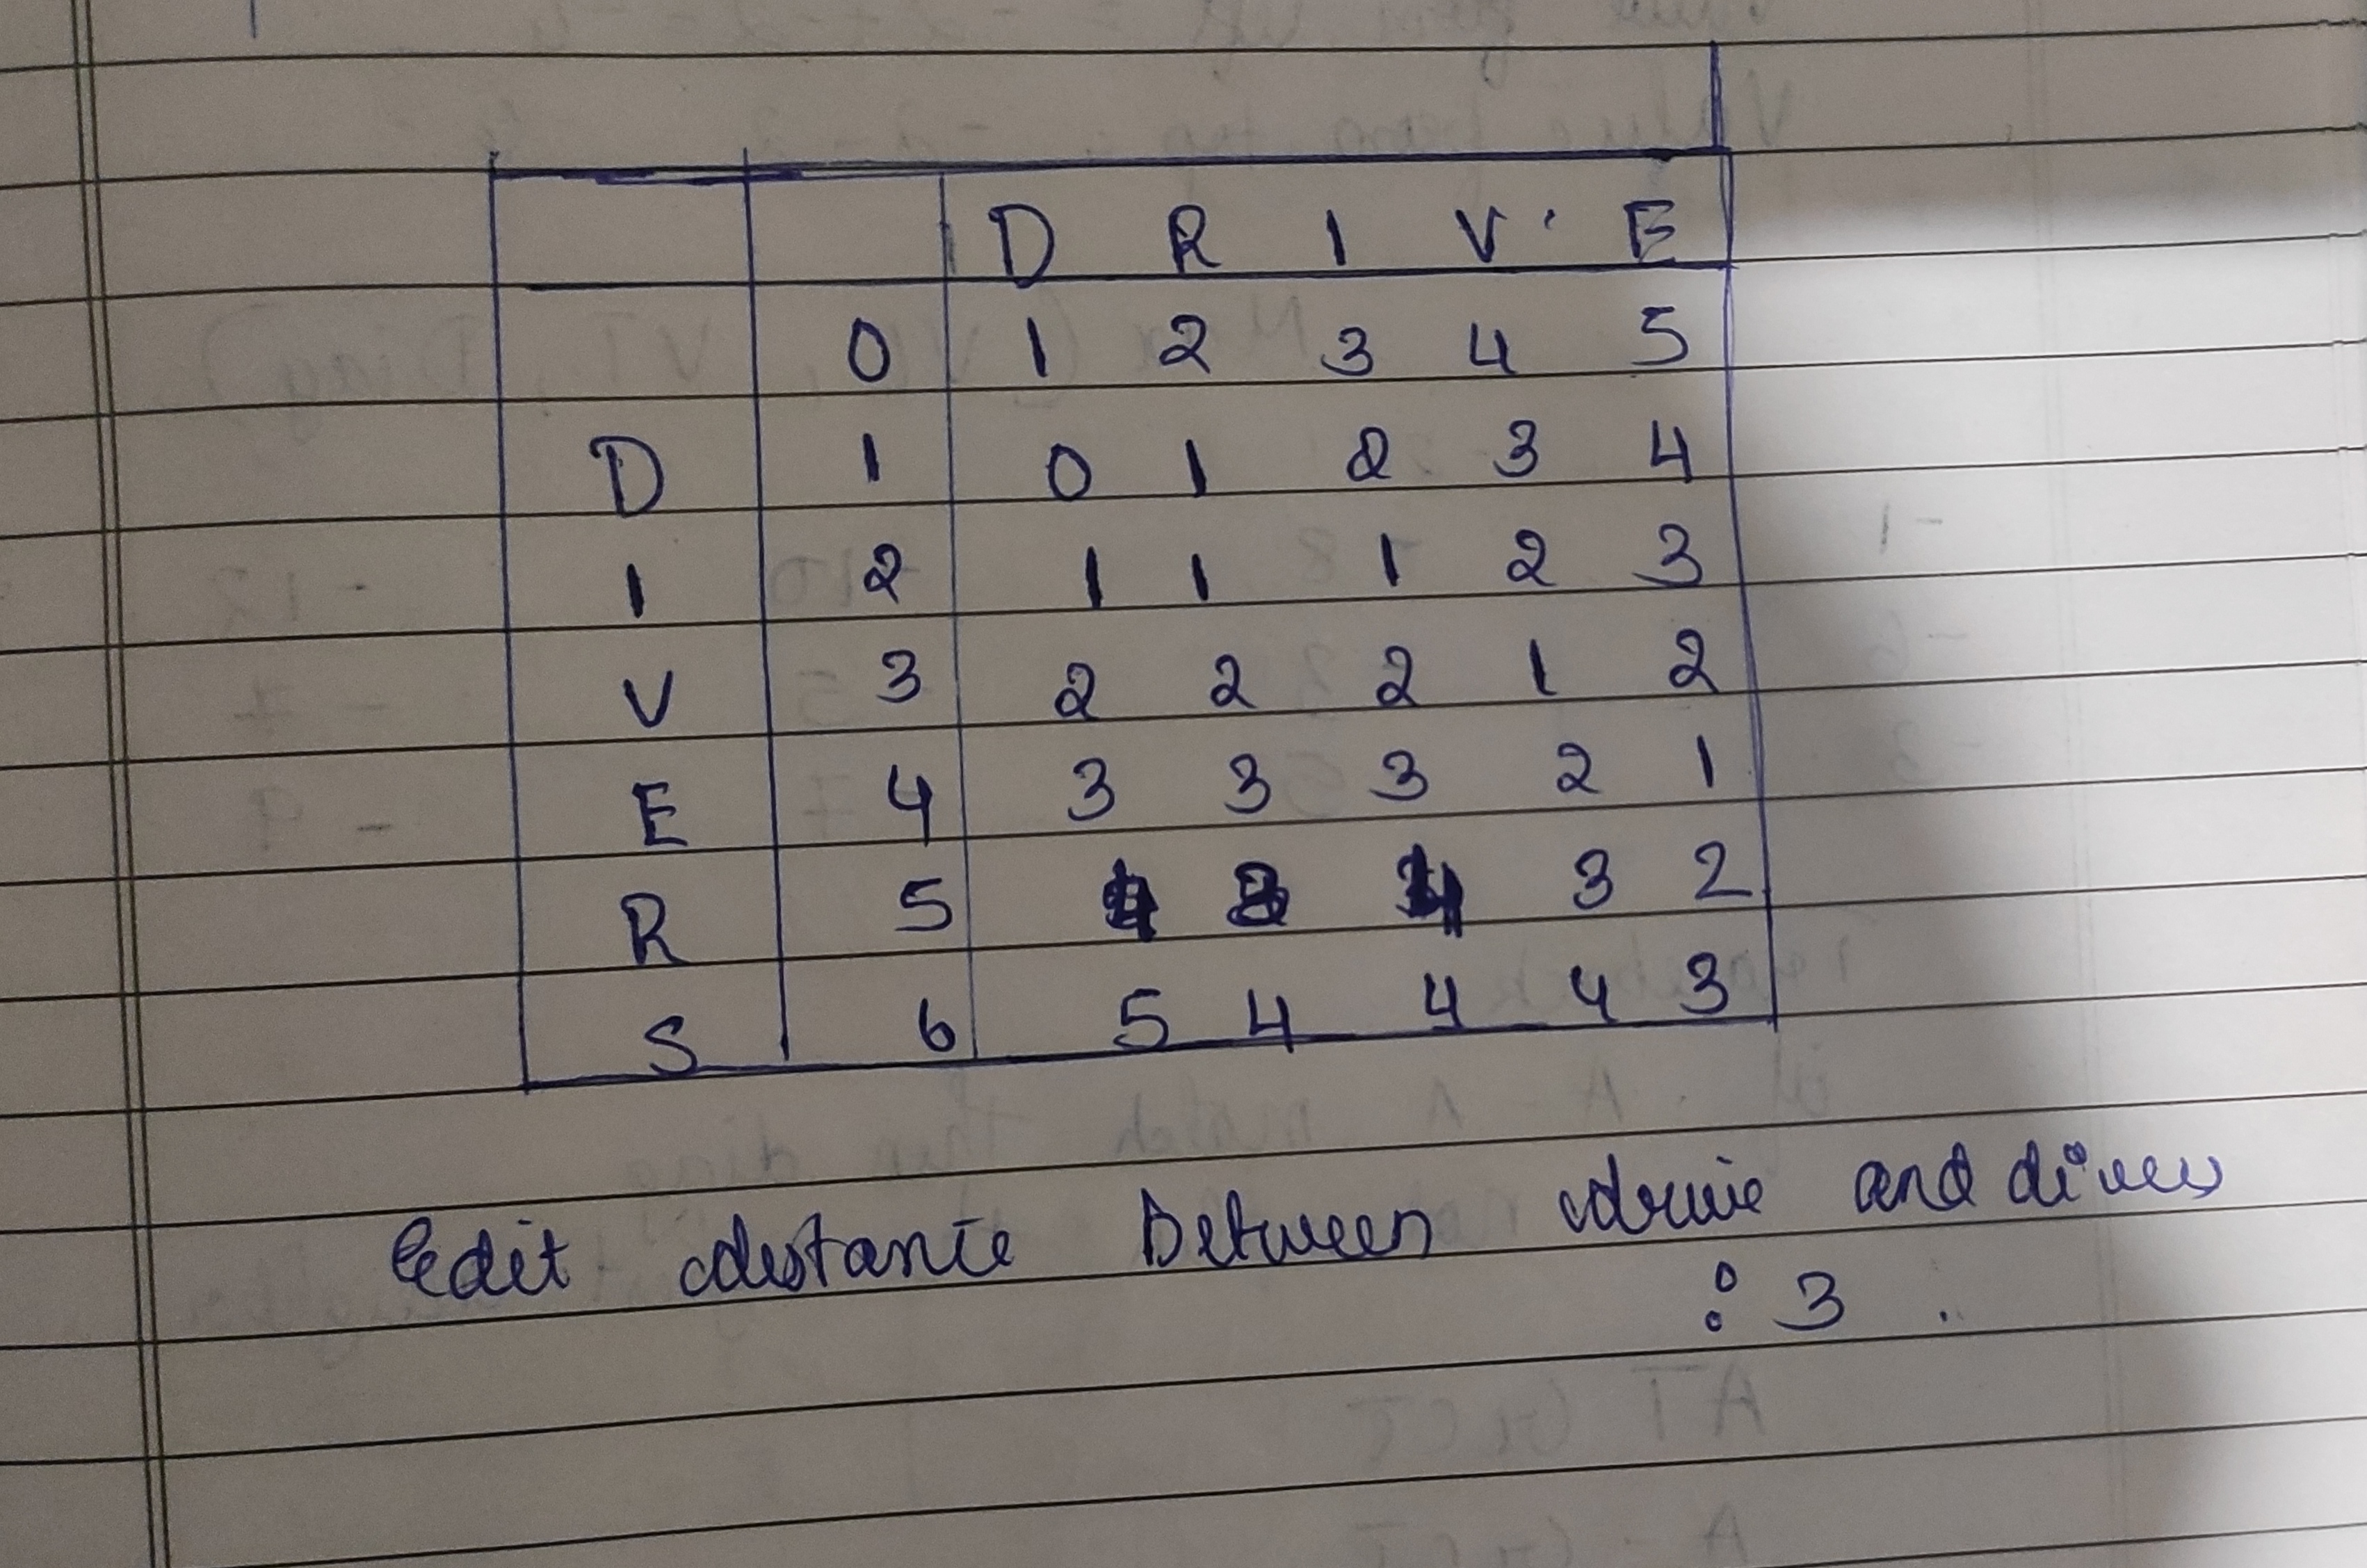 D R I V E
0 1 2 3 4 5
D 1 0 1 2 3 4
I 2 1 1 1 2 3
V 3 2 2 2 1 2
E 4 3 3 3 2 1
R 5 4 3 4 3 2
S 6 5 4 4 4 3
Edit distance between drive and divers
: 3